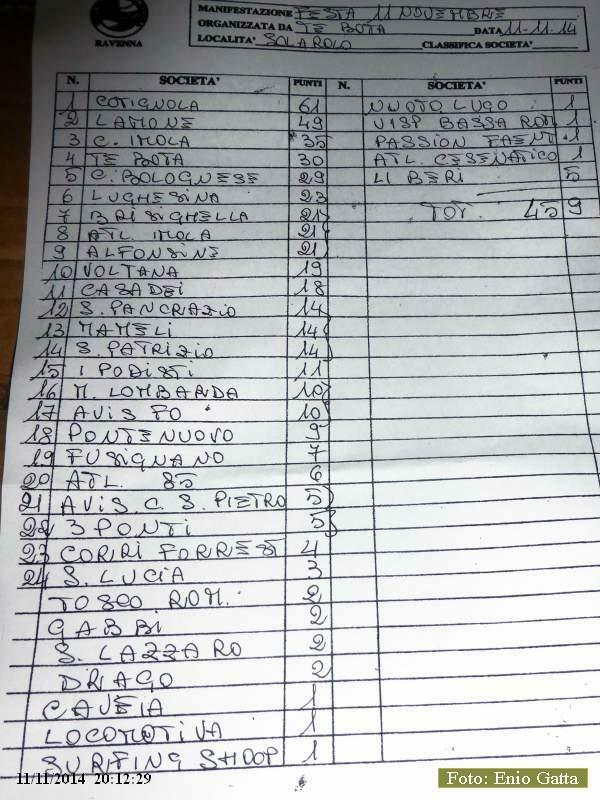 RAVENNA
MANIFESTAZIONE FESTA 11 NOVEMBRE
ORGANIZZATA DA TE BOTA DATA 11-11-14
LOCALITA' SOLAROLO CLASSIFICA SOCIETA'
N. SOCIETA' PUNTI N. SOCIETA' PUNTI
1 COTIGNOLA 61 NUOTO LUGO 1
2 LAMONE 49 UISP BASSA ROM 1
3 C. IMOLA 35 PASSION FAENT. 1
4 TE BOTA 30 ATL. CESENATICO 1
5 C. BOLOGNESE 29 LI BERI 5
6 LUGHESINA 23
7 BRISIGHELLA 21 TOT. 459
8 ATL. IMOLA 21
9 ALFONSINE 21
10 VOLTANA 19
11 CASADEI 18
12 S. PANCRAZIO 14
13 MAMELI 14
14 S. PATRIZIO 14
15 I PODISTI 11
16 M. LOMBARDA 10
17 AVIS FO 10
18 PONTENUOVO 9
19 FUSIGNANO 7
20 ATL. 85 6
21 AVIS C. S. PIETRO 5
22 3 PONTI 5
23 CORRI FORREST 4
24 S. LUCIA 3
TOSCO ROM. 2
GABBI 2
S. LAZZARO 2
DRAGO 2
CAVEIA 1
LOCOMOTIVA 1
SURFING SHOOP 1
11/11/2014 20:12:29
Foto: Enio Gatta